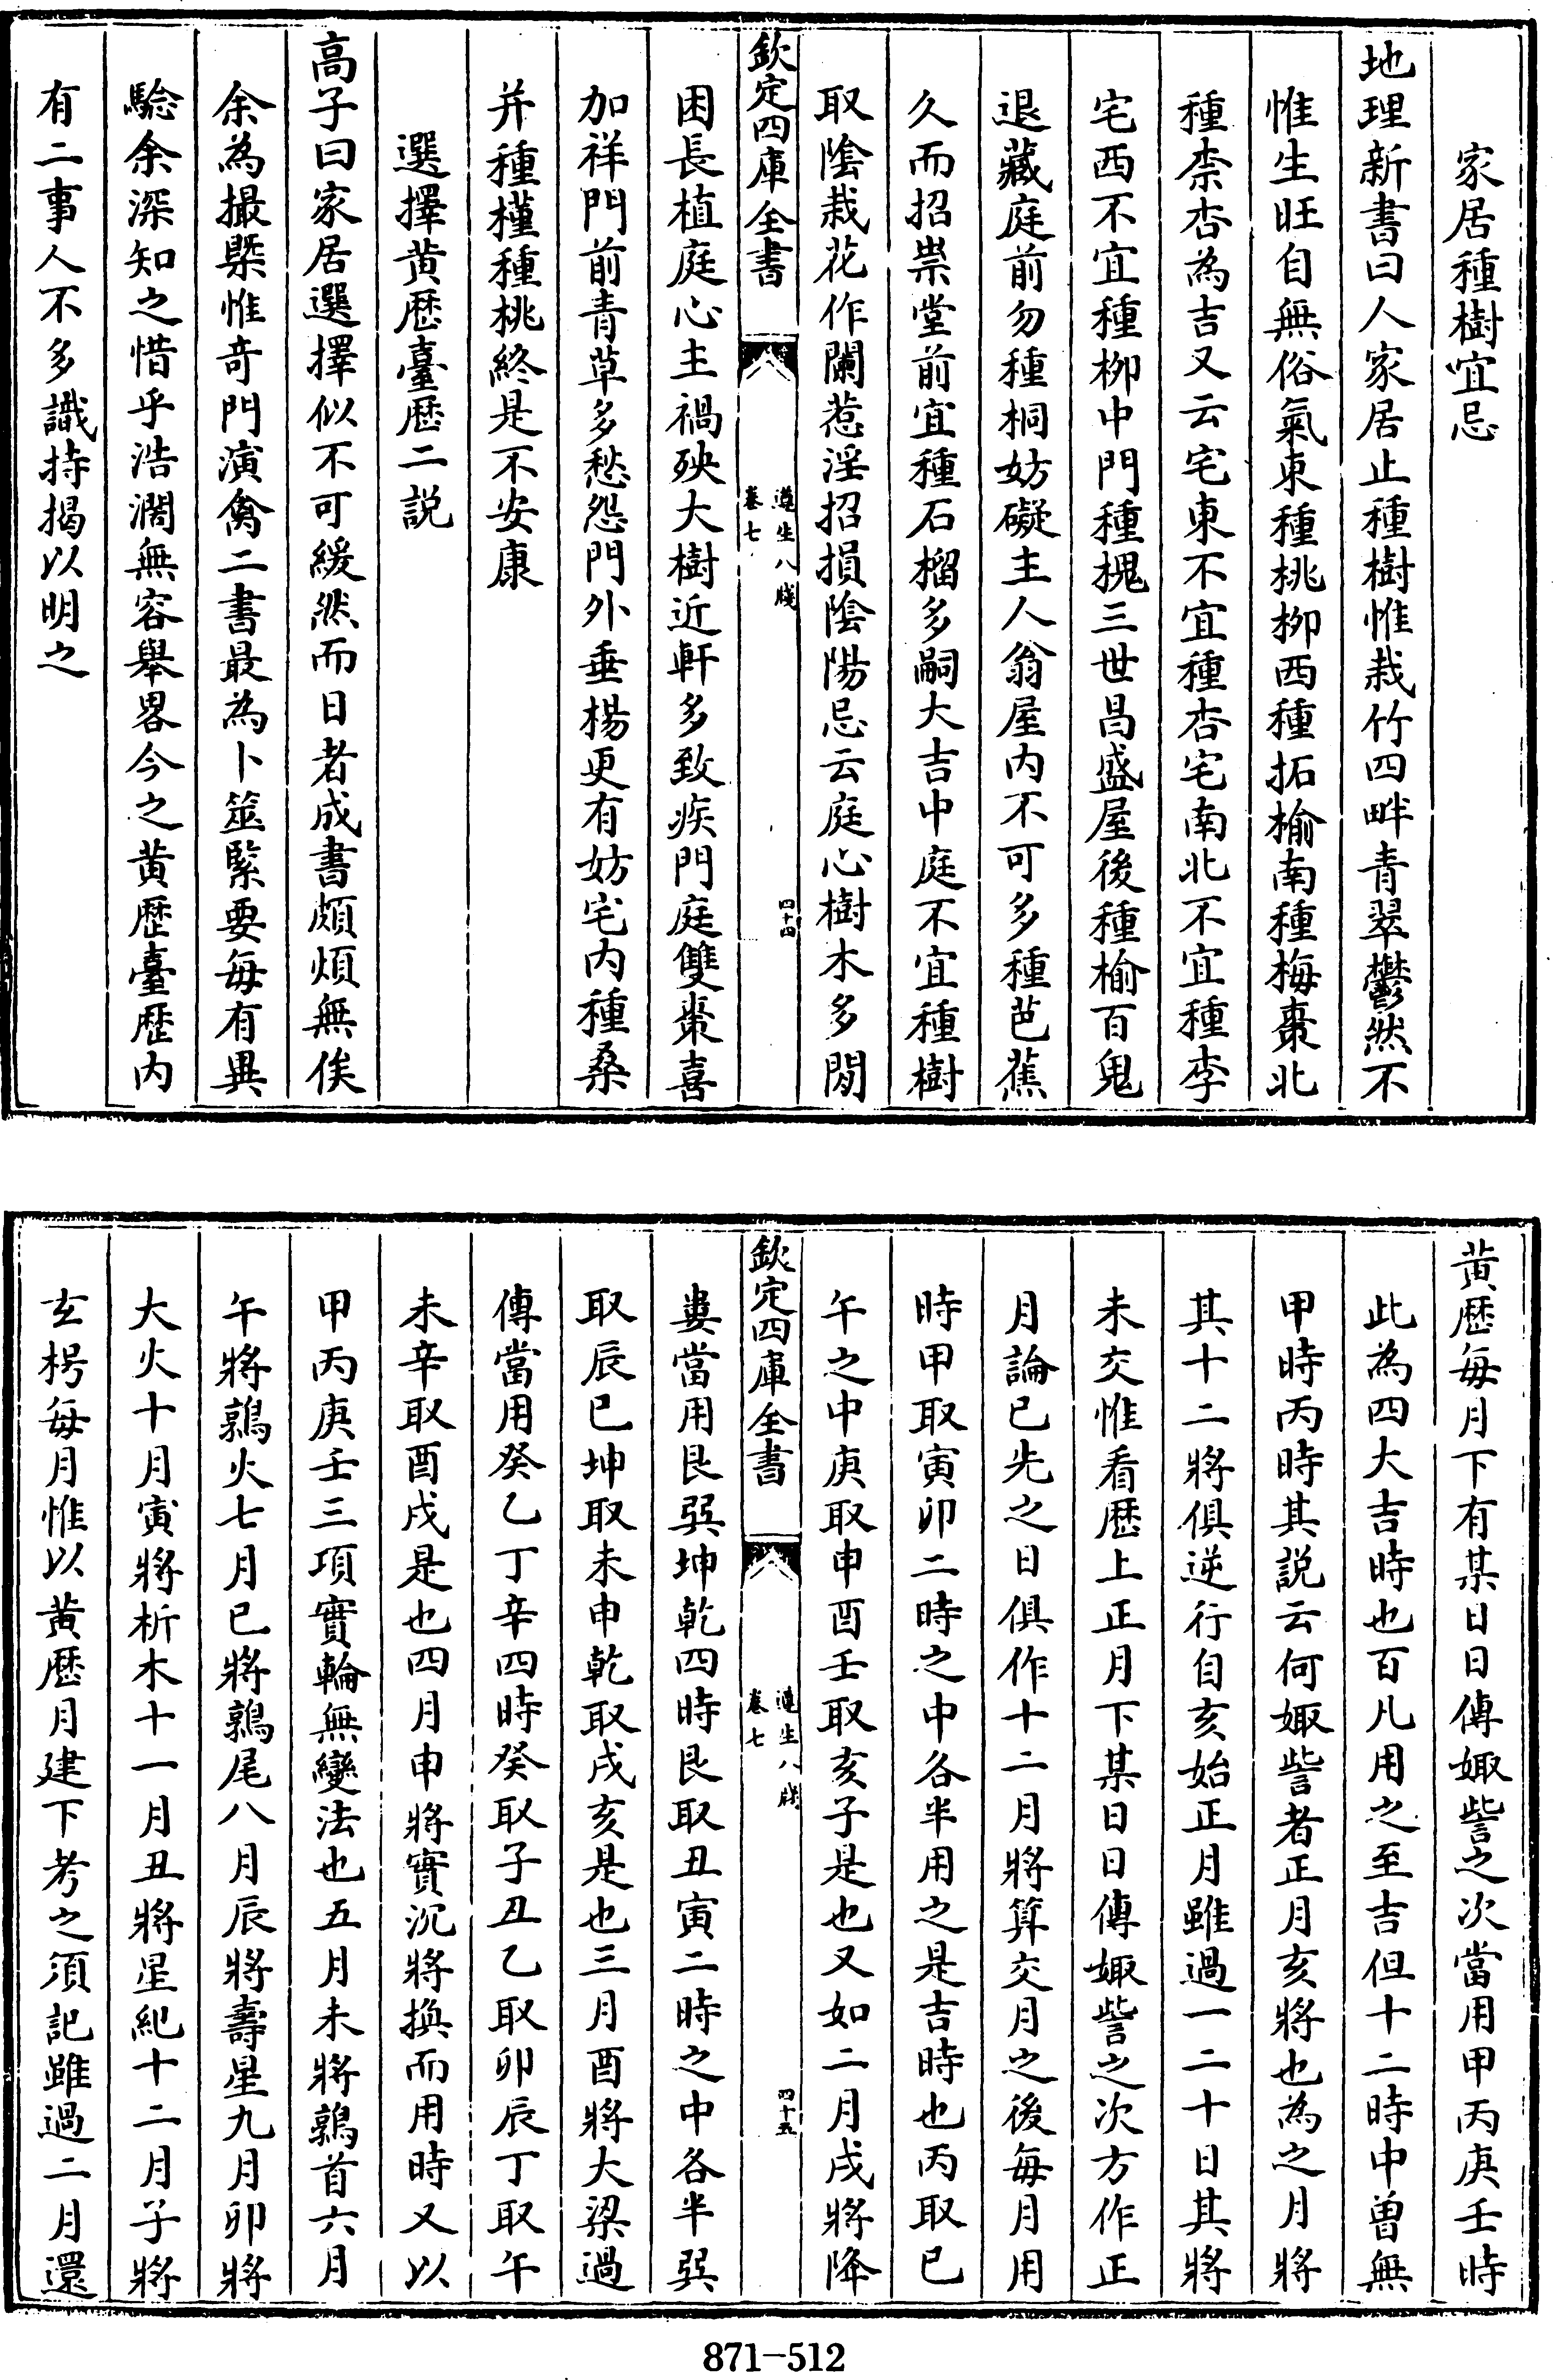 家居種樹宜忌
地理新書曰人家居止種樹惟栽竹四畔青翠鬱然不
惟生旺自無俗氣東種桃柳西種拓榆南種梅棗北
種柰杏為吉又云宅東不宜種杏宅南北不宜種李
宅西不宜種柳中門種槐三世昌盛屋後種榆百鬼
退藏庭前勿種桐妨礙主人翁屋内不可多種芭蕉
久而招祟堂前宜種石榴多嗣大吉中庭不宜種樹
取隂栽花作闌惹淫招損隂陽忌云庭心樹木多閒
欽定四庫全書
遵生八牋
卷七
四十四
困長植庭心主禍殃大樹近軒多致疾門庭雙棗喜
加祥門前青草多愁怨門外垂楊更有妨宅内種桑
并種槿種桃終是不安康
選擇黄歴臺歴二説
高子曰家居選擇似不可緩然而日者成書頗煩無俟
余為撮槩惟奇門演禽二書最為卜筮緊要每有異
騐余深知之惜乎浩濶無容舉畧今之黄歴臺歴内
有二事人不多識持揭以明之
黄歴每月下有某日日傳娵訾之次當用甲丙庚壬時
此為四大吉時也百凡用之至吉但十二時中曽無
甲時丙時其説云何娵訾者正月亥將也為之月將
其十二將俱逆行自亥始正月雖過一二十日其將
未交惟看歴上正月下某日日傳娵訾之次方作正
月論已先之日俱作十二月將算交月之後每月用
時甲取寅卯二時之中各半用之是吉時也丙取巳
午之中庚取申酉壬取亥子是也又如二月戌將降
欽定四庫全書
遵生八牋
卷七
四十五
婁當用艮巽坤乾四時艮取丑寅二時之中各半巽
取辰巳坤取未申乾取戌亥是也三月酉將大梁過
傳當用癸乙丁辛四時癸取子丑乙取卯辰丁取午
未辛取酉戌是也四月申將實沉將換而用時又以
甲丙庚壬三項實輪無變法也五月未將鶉首六月
午將鶉火七月巳將鶉尾八月辰將壽星九月卯將
大火十月寅將析木十一月丑將星紀十二月子將
玄枵每月惟以黄歴月建下考之須記雖過二月還
871-512